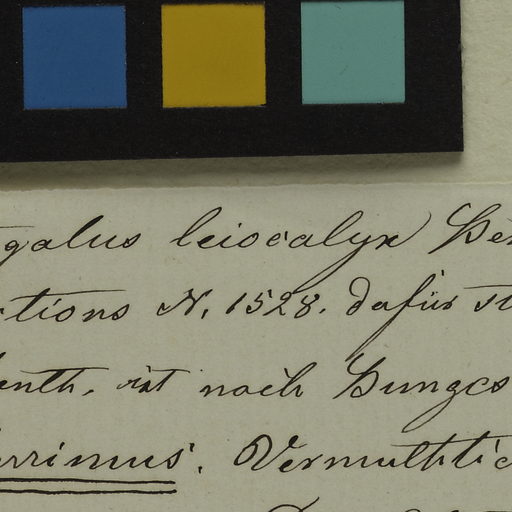 galus leiocalyx
tions N. 1528. dafür
enth. ist nach Bunges
rrimus. Vermuthlic